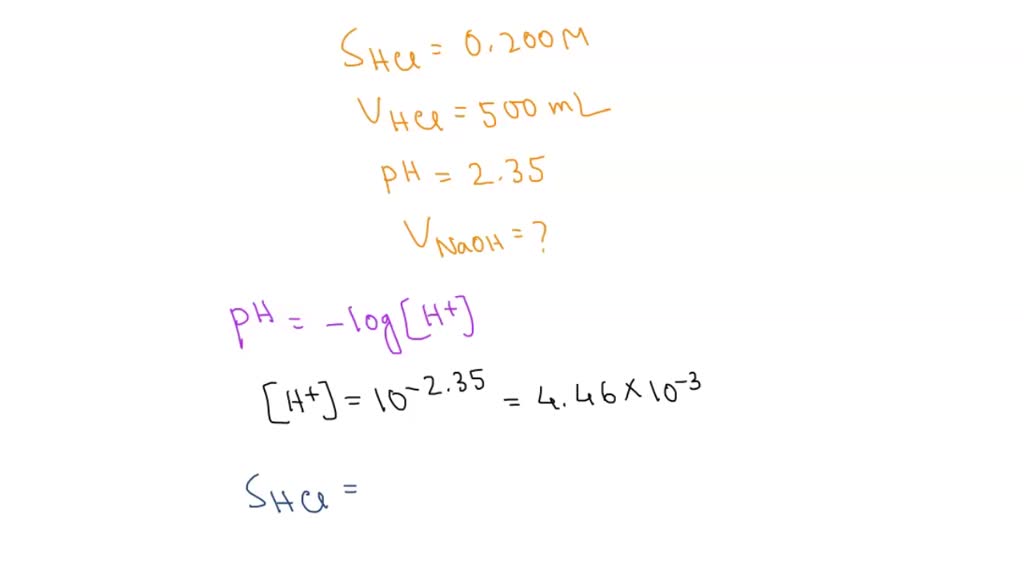 S_HCl = 0.200M
V_HCl = 500 mL
pH = 2.35
V_NaOH = ?
pH = -log[H+]
[H+] = 10^-2.35 = 4.46 × 10^-3
S_HCl =